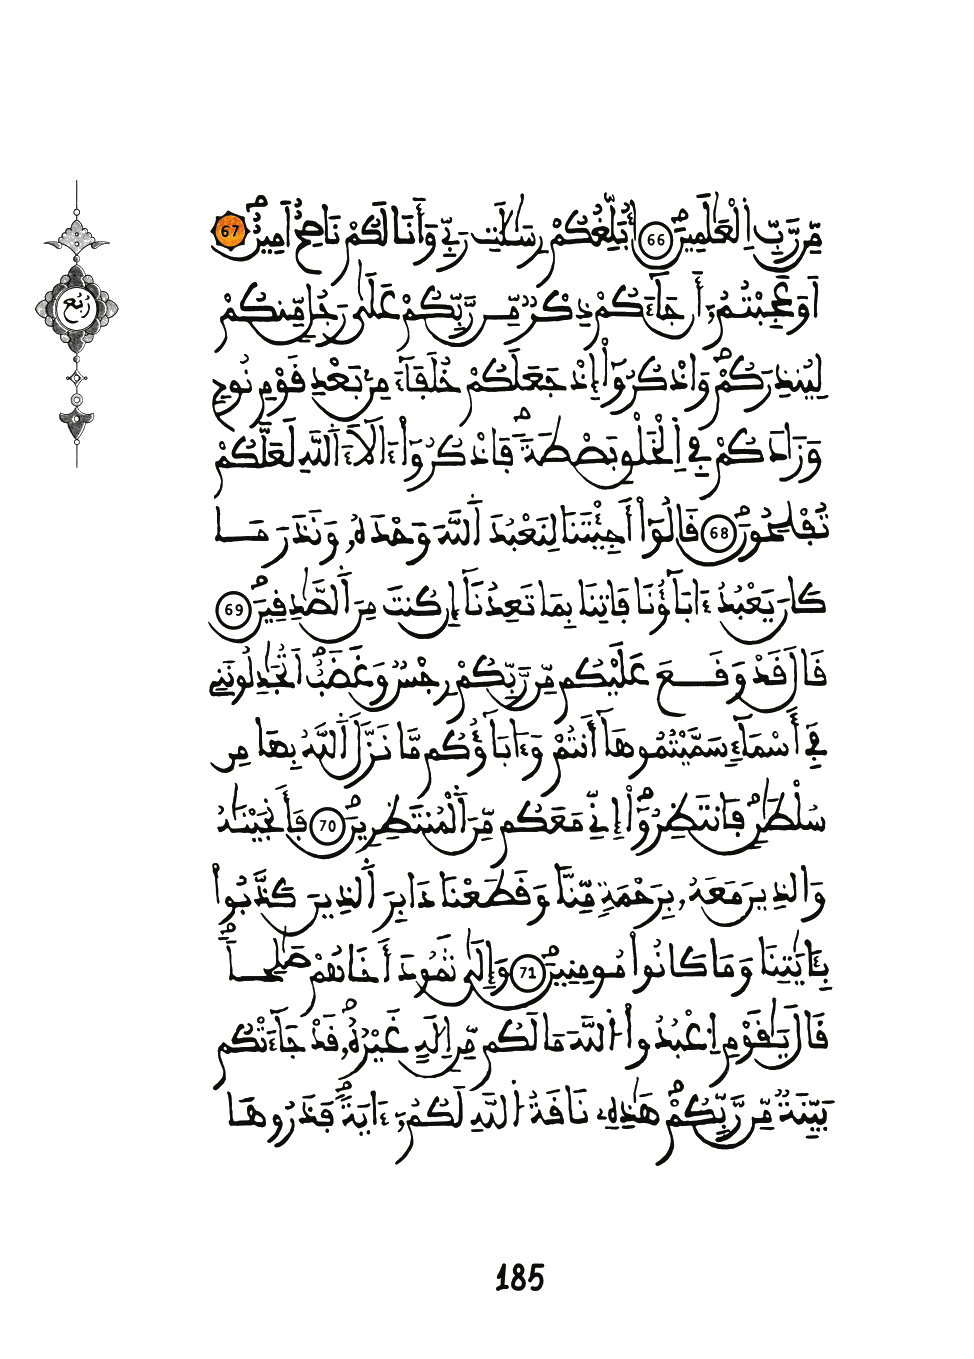 مِّن رَّبِّ اِ۬لْعَٰلَمِينَۖ 66 أُبَلِّغُكُمْ رِسَٰلَٰتِ رَبِّے وَأَنَا لَكُمْ نَاصِحٌ اَمِينٌۖ 67
اَوَعَجِبْتُمُۥٓ أَن جَآءَكُمْ ذِكْرٌ مِّن رَّبِّكُمْ عَلَىٰ رَجُلٍ مِّنكُمْ
لِيُنذِرَكُمْۖ وَاذْكُرُوٓاْ إِذْ جَعَلَكُمْ خُلَفَآءَ مِنۢ بَعْدِ قَوْمِ نُوحٍ
وَزَادَكُمْ فِے اِ۬لْخَلْقِ بَصْۜطَةٗۖ فَاذْكُرُوٓاْ ءَالَآءَ اَ۬للَّهِ لَعَلَّكُمْ
تُفْلِحُونَۖ 68 قَالُوٓاْ أَجِئْتَنَا لِنَعْبُدَ اَ۬للَّهَ وَحْدَهُۥ وَنَذَرَ مَا
كَانَ يَعْبُدُ ءَابَآؤُنَا فَاتِنَا بِمَا تَعِدُنَآ إِن كُنتَ مِنَ اَ۬لصَّٰدِقِينَۖ 69
قَالَ قَدْ وَقَعَ عَلَيْكُم مِّن رَّبِّكُمْ رِجْسٌ وَغَضَبٌۖ اَتُجَٰدِلُونَنِے
فِےٓ أَسْمَآءٖ سَمَّيْتُمُوهَآ أَنتُمْ وَءَابَآؤُكُم مَّا نَزَّلَ اَ۬للَّهُ بِهَا مِن
سُلْطَٰنٖۖ فَانتَظِرُوٓاْۖ إِنِّے مَعَكُم مِّنَ اَ۬لْمُنتَظِرِينَۖ 70 فَأَنجَيْنَٰهُ
وَالذِينَ مَعَهُۥ بِرَحْمَةٖ مِّنَّا وَقَطَعْنَا دَابِرَ اَ۬لذِينَ كَذَّبُواْ
بِـَٔايَٰتِنَا وَمَا كَانُواْ مُومِنِينَۖ 71 وَإِلَىٰ ثَمُودَ أَخَاهُمْ صَٰلِحاًۖ
قَالَ يَٰقَوْمِ اِ۟عْبُدُواْ اُ۬للَّهَ مَا لَكُم مِّنِ اِلَٰهٍ غَيْرُهُۥۖ قَدْ جَآءَتْكُم
بَيِّنَةٞ مِّن رَّبِّكُمْۖ هَٰذِهِۦ نَاقَةُ اُ۬للَّهِ لَكُمُۥٓ ءَايَةٗۖ فَذَرُوهَا
رُبُع
185